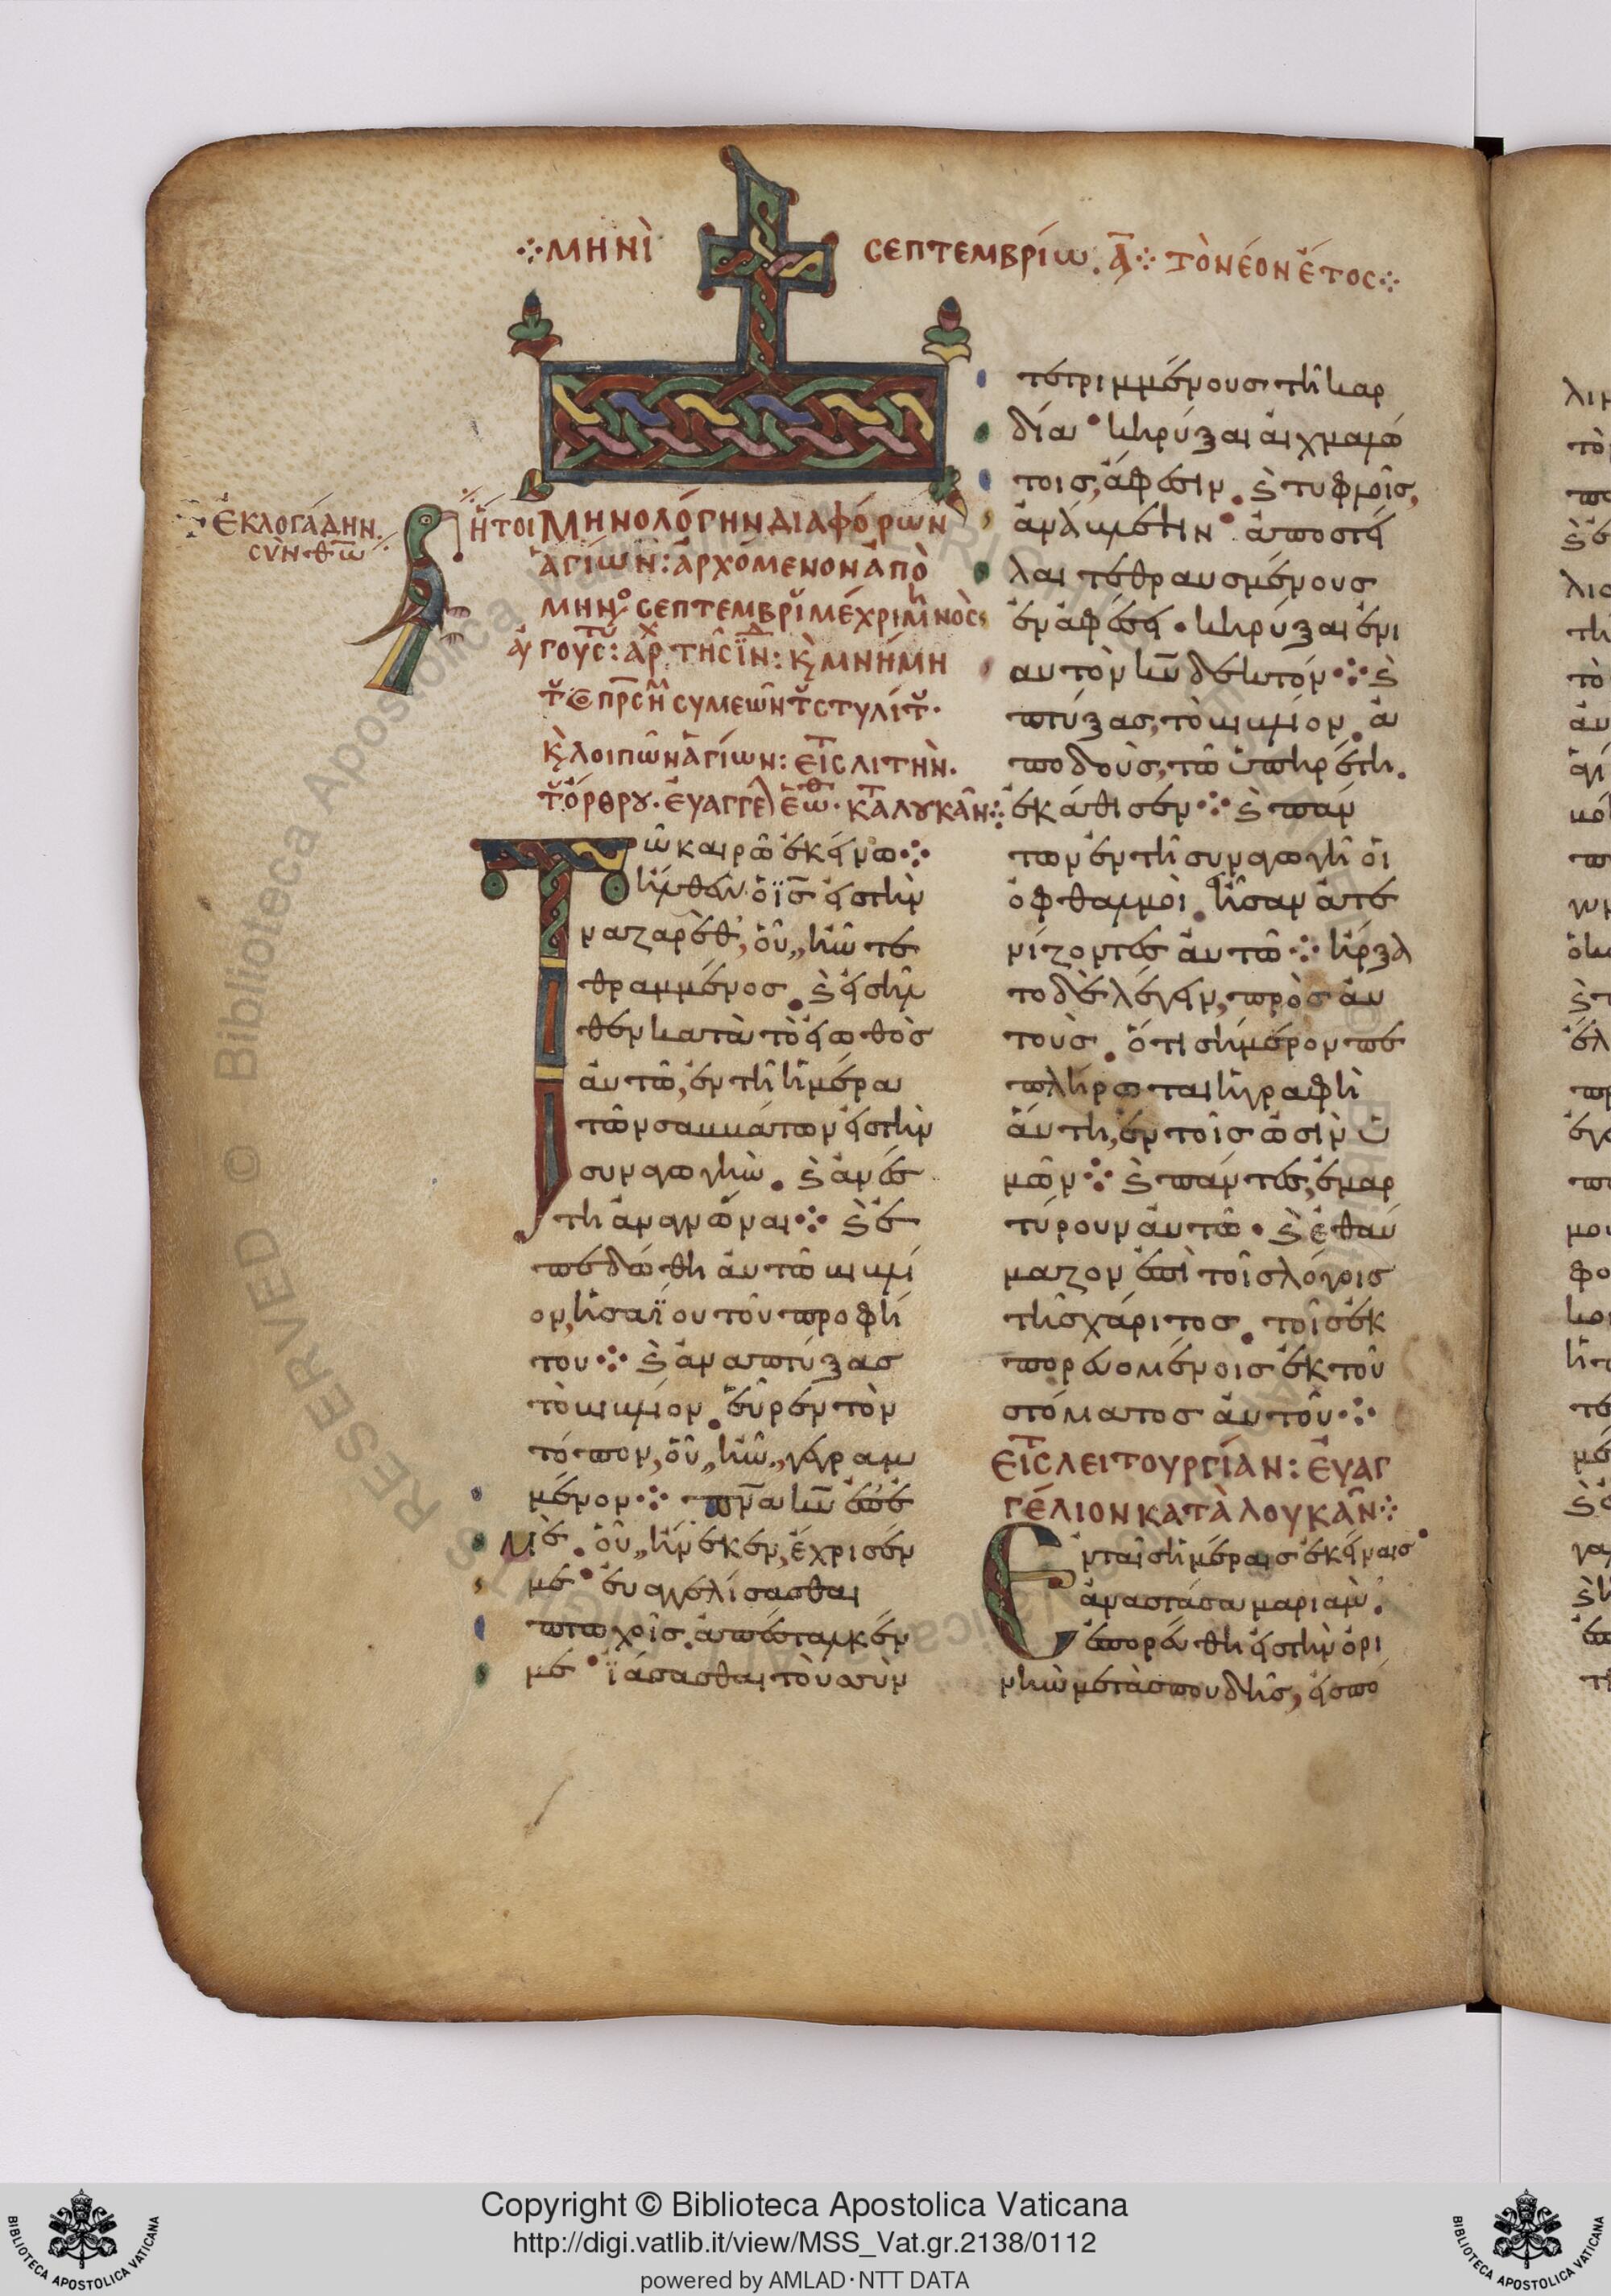 ⁘ ΜΗΝῚ ϹΕΠΤΕΜΒΡΊΩ. Ᾱ ⁘ ΤῸ ΝΈΟΝ ἜΤΟϹ ⁘
ἘΚΛΟΓΆΔΗΝ.
ϹῪΝ ΘΩ̅
ἬΤΟΙ ΜΗΝΟΛΌΓΗΝ ΔΙΑΦΌΡΩΝ
ἉΓΊΩΝ: ἈΡΧΌΜΕΝΟΝ ἈΠῸ
ΜΗΝΟ ϹΕΠΤΕΜΒΡΙ ΜΈΧΡΙ ΜΗΝῸϹ
ΑΥΓΟΥϹΤ: ἈΡΧ ΤΗ͂Ϲ ἸΝΔ: Κ ΜΝΉΜΗ
ϹΥΜΕΩ͂Ν Τ ϹΤΥΛΊΤ·
Κ ΛΟΙΠΩ͂Ν ἉΓΊΩΝ: ΕἸϹ ΛΙΤῊΝ.
Τ ὌΡΘΡΥ· ΕΥΑΓΓΕΛ ἙΩΘ· ΚΑΤ ΛΟΥΚΑ͂Ν ⁘
Τῶ καιρῶ ἐκείνω ⁘
ἦλθεν ὁ ι̅ς̅ εἰς τὴν
ναζαρὲθ, οὗ ἦν τε
θραμμένος. καὶ εἰσῆλ
θεν κατὰ τὸ εἰωθὸς
αὐτῶ, ἐν τῆ ἡμέρα
τῶν σαββάτων εἰς τὴν
συναγωγὴν. καὶ ἀνέσ
τη ἀναγνῶναι ⁘ καὶ ἐ
πεδώθη αὐτῶ βιβλί
ον, ἡσαΐου τοῦ προφή
του ⁘ καὶ ἀναπτύξας
τὸ βιβλίον. εὗρεν τὸν
τόπον, οὗ ἦν γεγραμ
μένον ⁘ πν̅α κ̅υ̅ ἐπ' ἐ
μὲ. οὗ ἥνεκεν, ἔχρισέν
με· εὐαγγελίσασθαι
πτωχοῖς. ἀπέσταλκέν
με· ἰάσασθαι τοὺς συν
τετριμμένους τῆ καρ
δία· κηρύξαι αἰχμαλώ
τοις, ἄφεσιν. καὶ τυφλοῖς,
ἀνάβλεψην· ἀποστεῖ
λαι τεθραυσμένους
ἐν ἀφέσει· κηρύξαι ἐνι
αυτὸν κ̅υ̅ δεκτόν ⁘ καὶ
πτύξας, τὸ βιβλίον. ἀ
ποδοὺς, τῶ ὑπηρέτη.
ἐκάθισεν ⁘ καὶ πάν
των ἐν τῆ συναγωγῆ οἱ
ὀφθαλμοὶ. ἦσαν ἀτε
νίζοντες αὐτῶ ⁘ ἤρξα
το δὲ λέγειν, πρὸς αὐ
τοὺς. ὅτι σήμερον πε
πλήρωται ἡ γραφὴ
αὕτη, ἐν τοῖς ὠσὶν ὑ
μῶν ⁘ καὶ πάντες, ἐμαρ
τύρουν αὐτῶ. καὶ ἐθαύ
μαζον ἐπὶ τοῖς λόγοις
τῆς χάριτος. τοῖς ἐκ
πορευομένοις ἐκ τοῦ
στόματος αὐτοῦ ⁘
ΕἸϹ ΛΕΙΤΟΥΡΓΊΑΝ: ΕΥΑΓ
ΓΈΛΙΟΝ ΚΑΤᾺ ΛΟΥΚΑ͂Ν ⁘
Ἐν ταῖς ἡμέραις ἐκείναις
ἀναστᾶσα μαριὰμ.
ἐπορεύθη εἰς τὴν ὀρι
νὴν μετὰ σπουδῆς, εἰς πό
Copyright © Biblioteca Apostolica Vaticana
http://digi.vatlib.it/view/MSS_Vat.gr.2138/0112
powered by AMLAD·NTT DATA
BIBLIOTECA APOSTOLICA VATICANA
BIBLIOTECA APOSTOLICA VATICANA